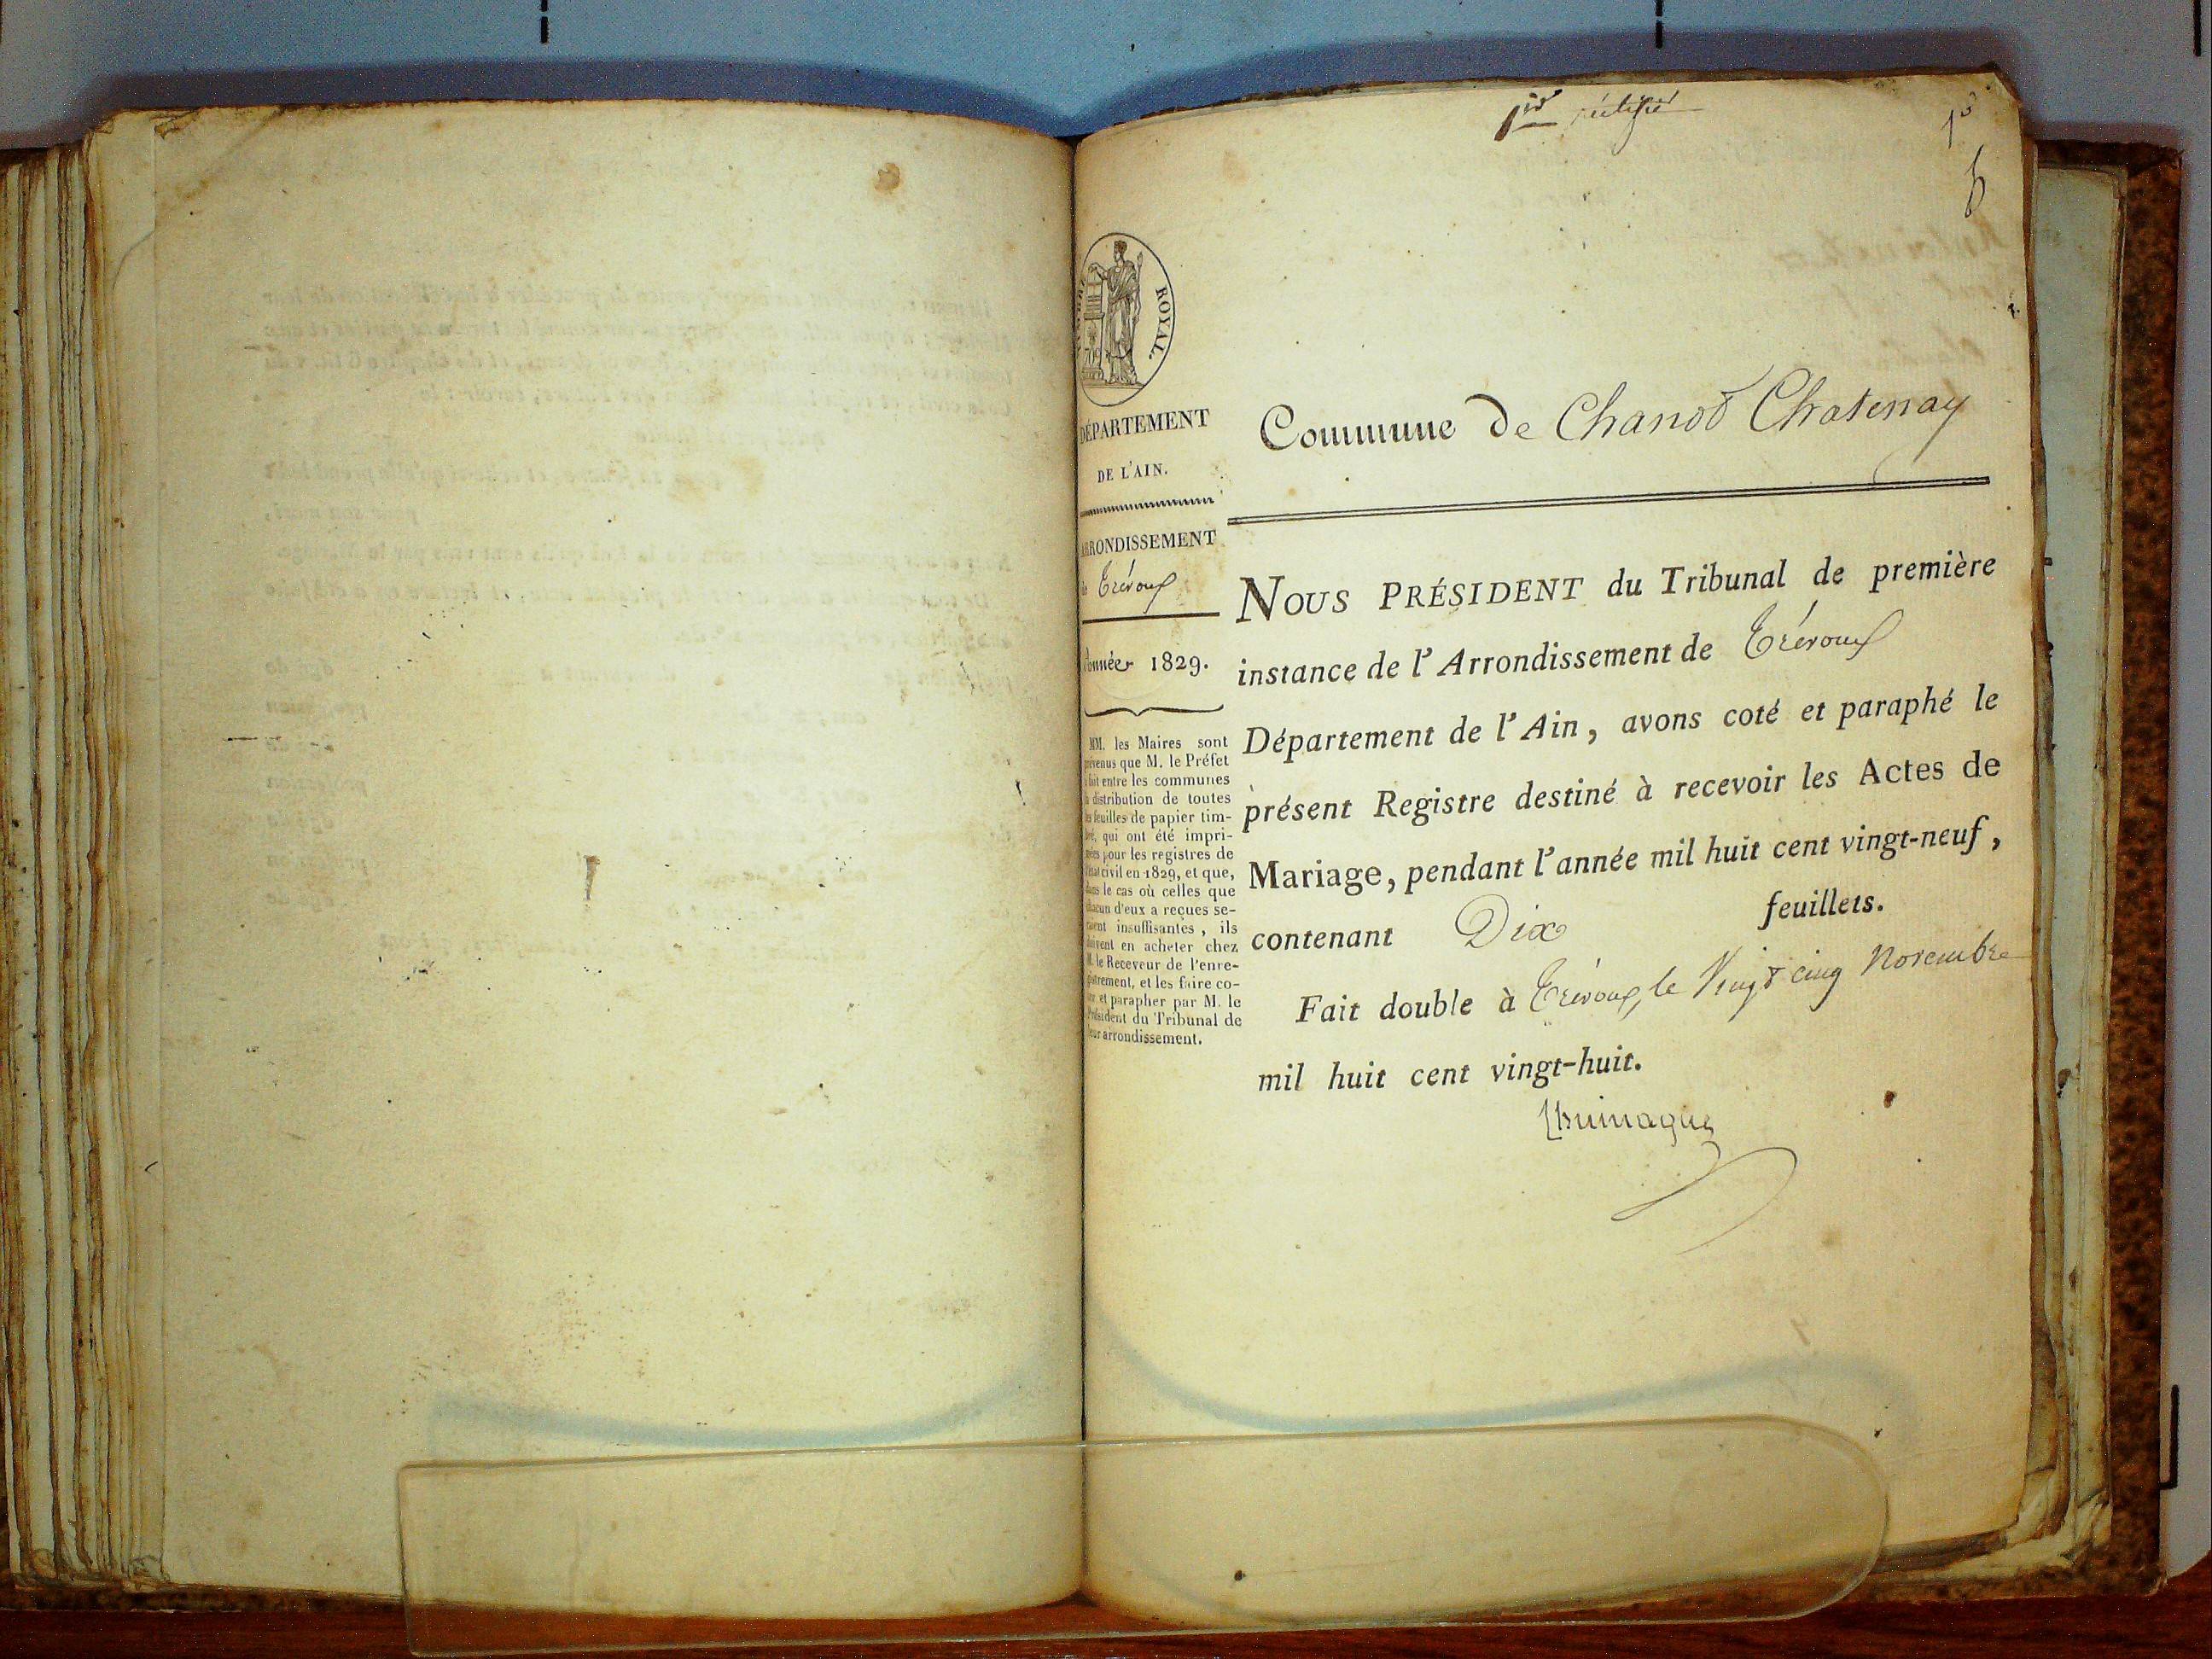 1er
ROYAL.
DÉPARTEMENT
DE L'AIN.
Commune de Chanod Chatenay
ARRONDISSEMENT
de Trévoux
Année 1829.
MM. les Maires sont
prévenus que M. le Préfet
a fait entre les communes
la distribution de toutes
les feuilles de papier tim-
bré, qui ont été impri-
mées pour les registres de
l'état civil en 1829, et que,
dans le cas où celles que
chacun d'eux a reçues se-
raient insuffisantes, ils
doivent en acheter chez
M. le Receveur de l'enre-
gistrement, et les faire co-
ter et parapher par M. le
Président du Tribunal de
leur arrondissement.
NOUS PRÉSIDENT du Tribunal de première
instance de l'Arrondissement de Trévoux
Département de l'Ain, avons coté et paraphé le
présent Registre destiné à recevoir les Actes de
Mariage, pendant l'année mil huit cent vingt-neuf,
contenant Dix feuillets.
Fait double à Trévoux, le Vingt cinq Novembre
mil huit cent vingt-huit.